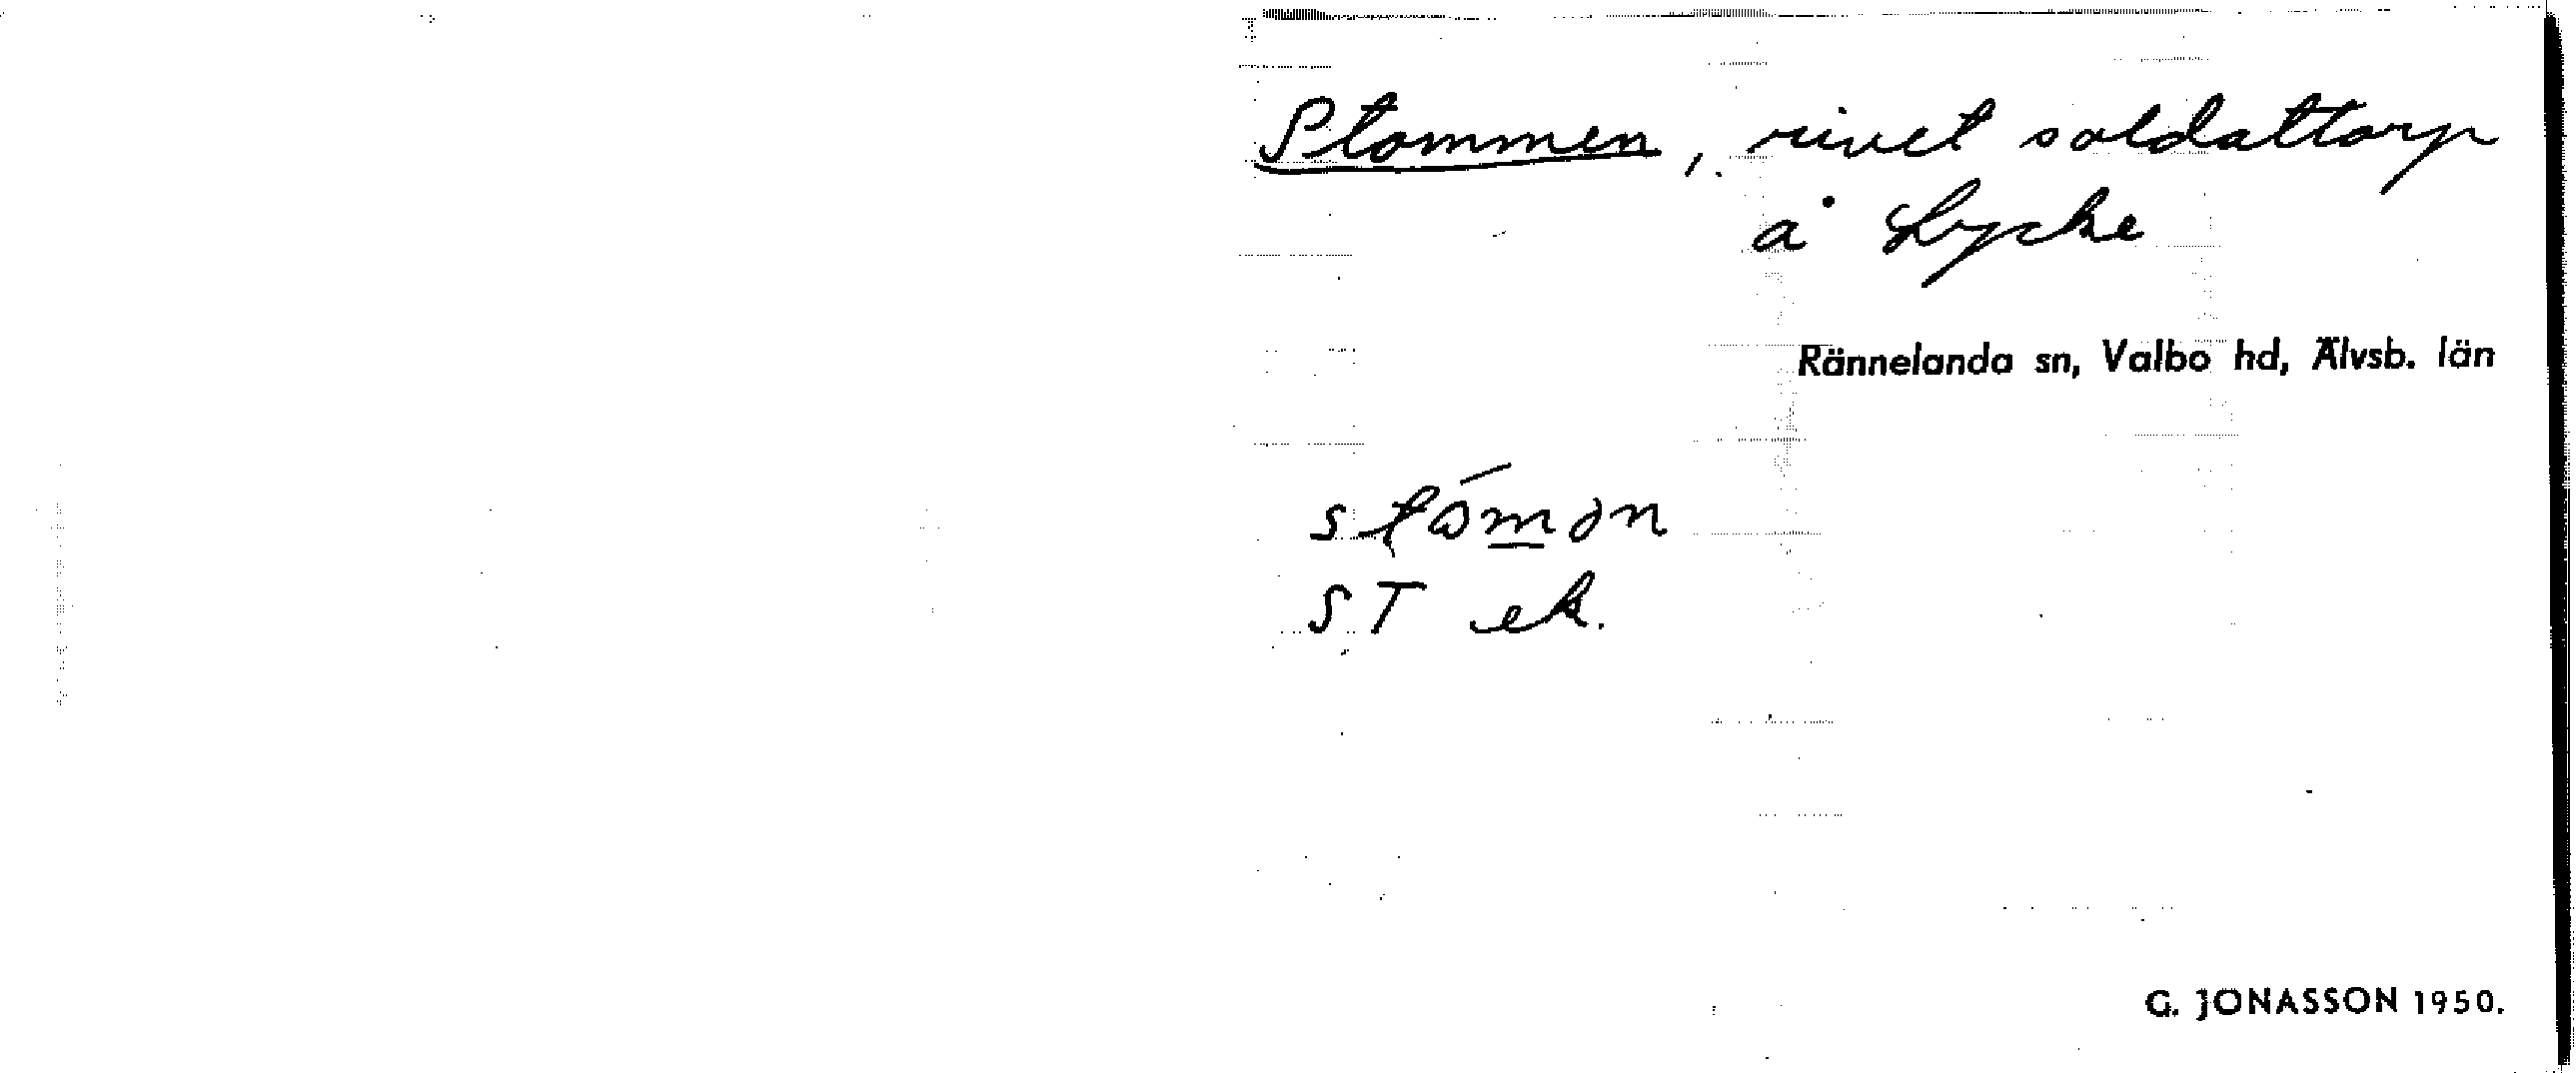 Stommen, rivet soldattorp
å Lycke
Rännelanda sn, Valbo hd, Älvsb. län
stómən
ST ek.
G. JONASSON 1950.